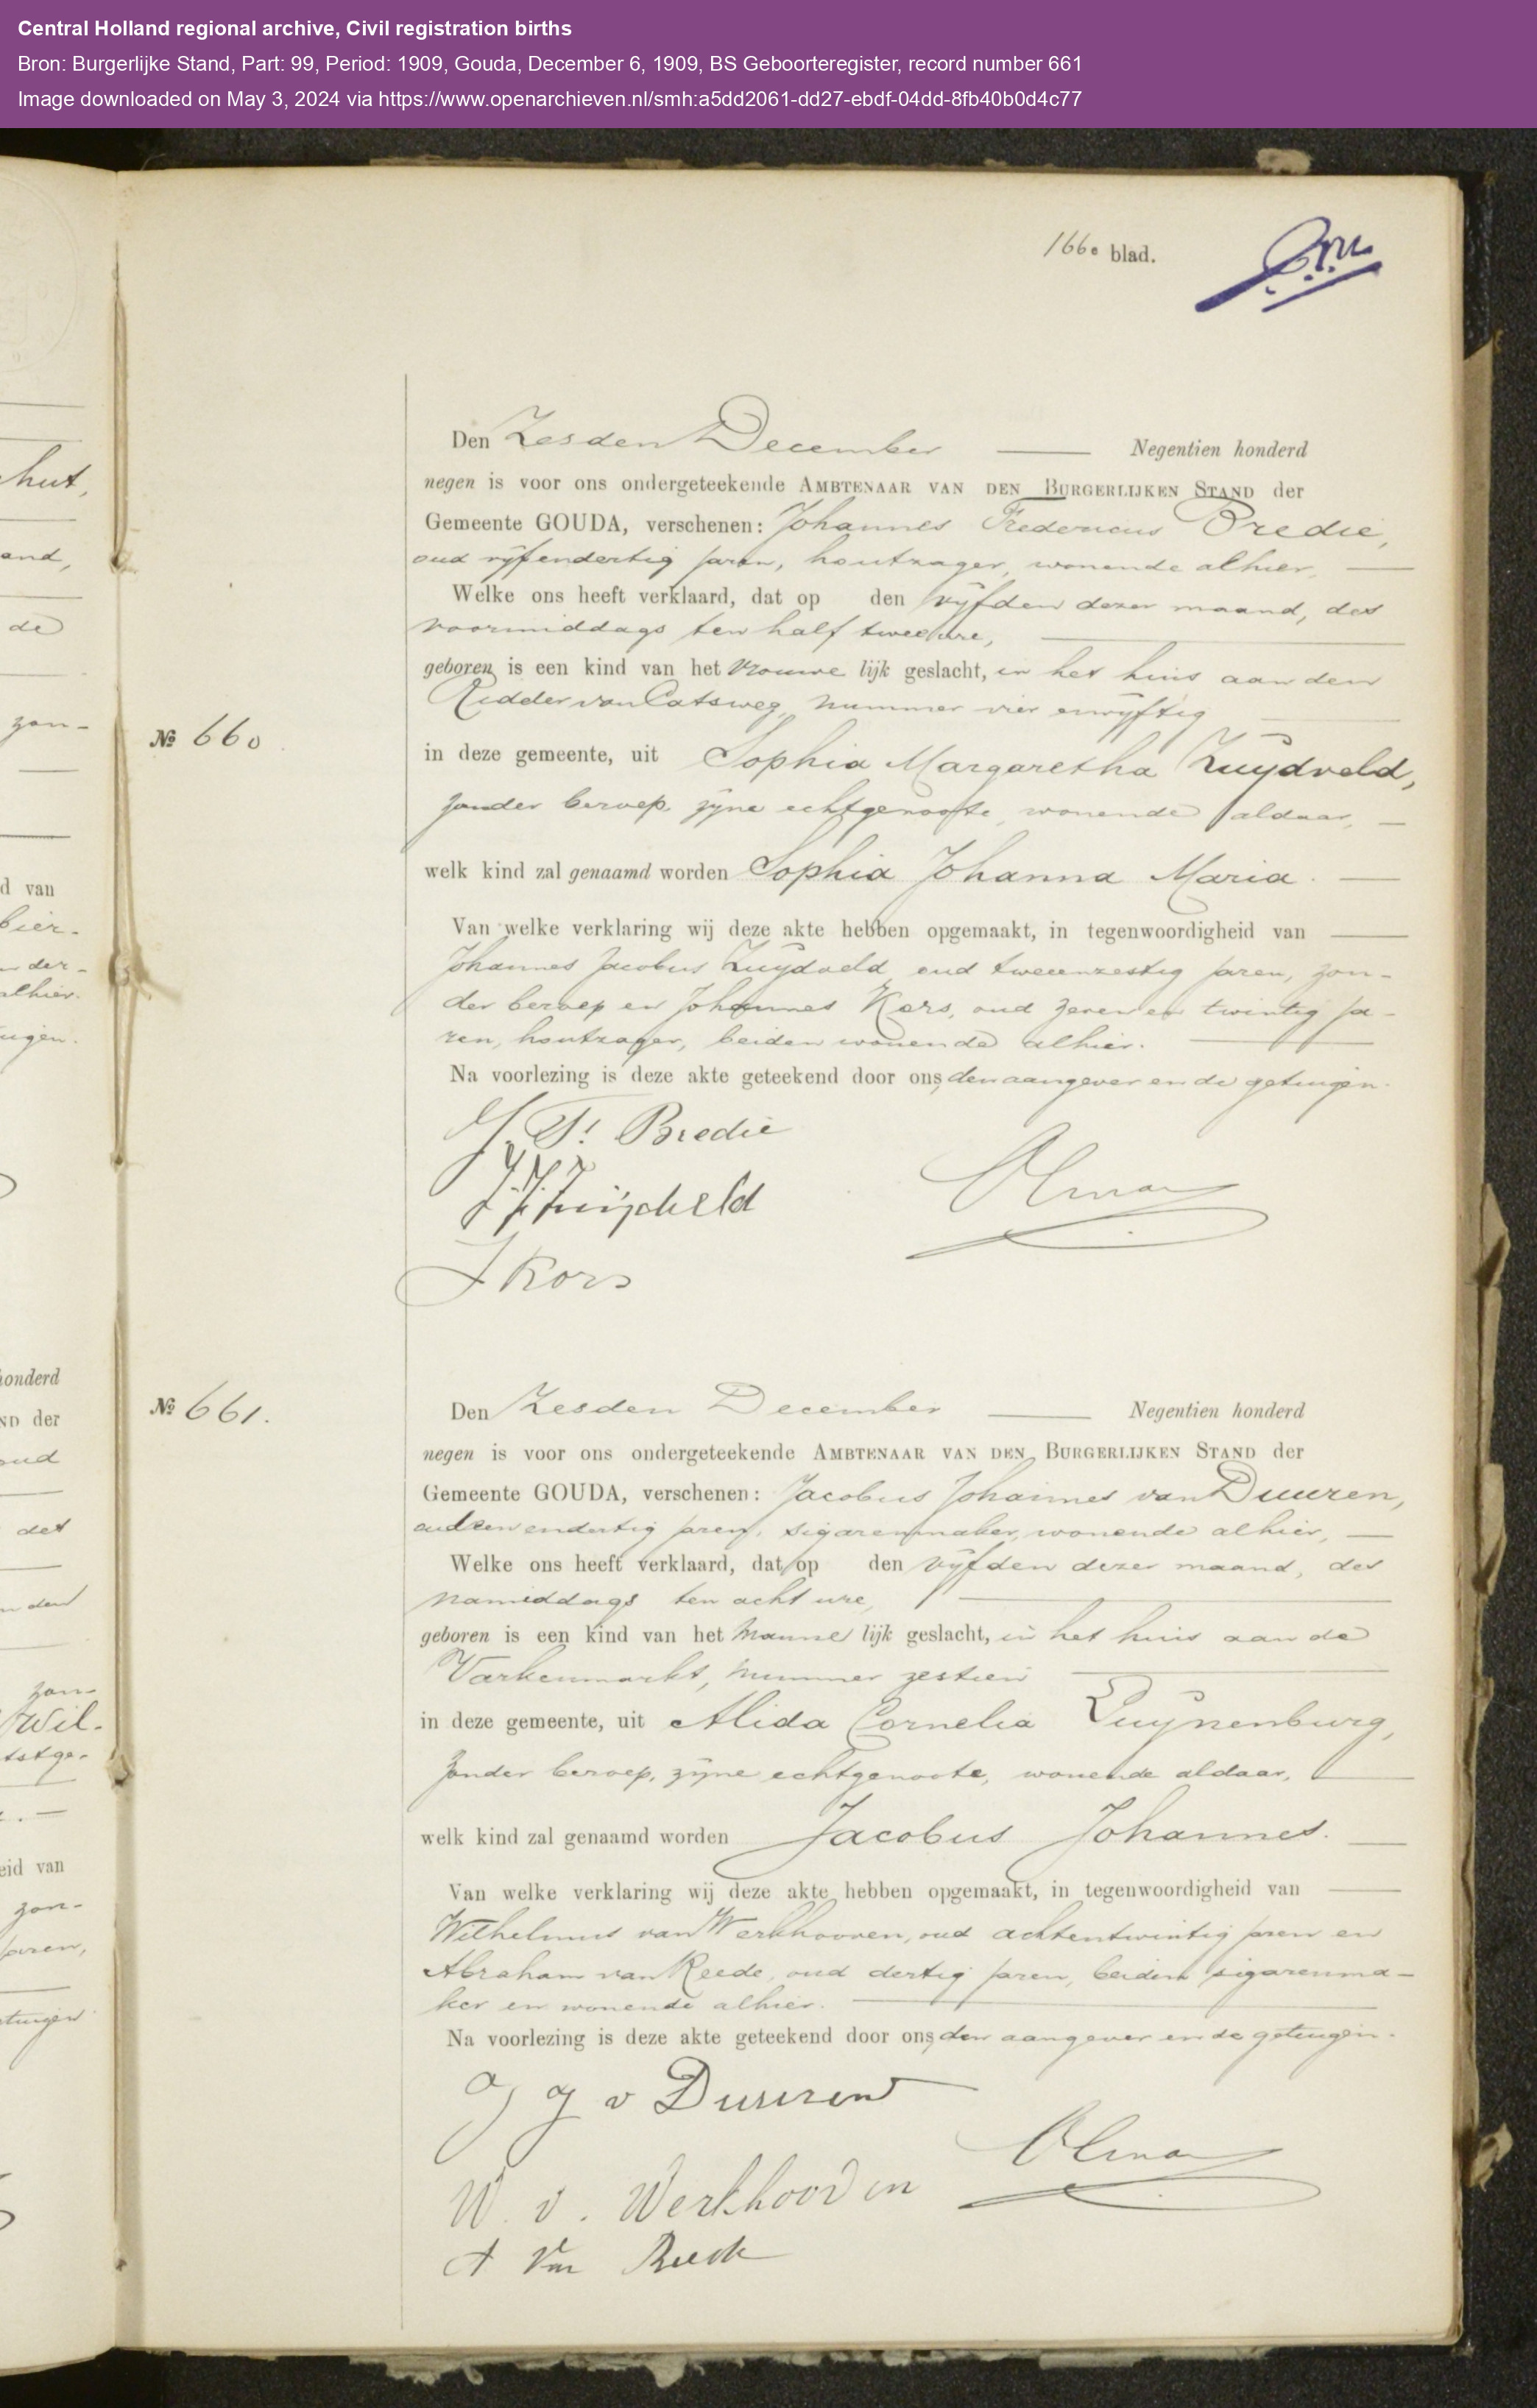 Central Holland regional archive, Civil registration births
Bron: Burgerlijke Stand, Part: 99, Period: 1909, Gouda, December 6, 1909, BS Geboorteregister, record number 661
Image downloaded on May 3, 2024 via https://www.openarchieven.nl/smh:a5dd2061-dd27-ebdf-04dd-8fb40b0d4c77
166e blad.
Den Zesden December Negentien honderd
negen is voor ons ondergeteekende AMBTENAAR VAN DEN BURGERLIJKEN STAND der
Gemeente GOUDA, verschenen: Johannes Fredericus Bredie,
oud vijfendertig jaren, houtzager, wonende alhier,
Welke ons heeft verklaard, dat op den vijfden dezer maand, des
voormiddags ten half twee ure,
geboren is een kind van het vrouwelijk geslacht, in het huis aan den
Ridder van Catsweg, nummer vier en vijftig
No 660
in deze gemeente, uit Sophia Margaretha Zuydveld,
zonder beroep, zijne echtgenoote, wonende aldaar,
welk kind zal genaamd worden Sophia Johanna Maria.
Van welke verklaring wij deze akte hebben opgemaakt, in tegenwoordigheid van
Johannes Jacobus Zuydveld, oud tweeenzestig jaren, zon-
der beroep en Johannes Kors, oud zeven en twintig ja-
ren, houtzager, beiden wonende alhier.
Na voorlezing is deze akte geteekend door ons, den aangever en de getuigen.
J. F. Bredie
J. J. Zuijdveld
J Kors
No 661.
Den Zesden December Negentien honderd
negen is voor ons ondergeteekende AMBTENAAR VAN DEN BURGERLIJKEN STAND der
Gemeente GOUDA, verschenen: Jacobus Johannes van Duuren,
oud een en dertig jaren, sigarenmaker, wonende alhier,
Welke ons heeft verklaard, dat op den vijfden dezer maand, des
namiddags ten acht ure,
geboren is een kind van het mannelijk geslacht, in het huis aan de
Varkenmarkt, nummer zestien
in deze gemeente, uit Alida Cornelia Luynenburg,
zonder beroep, zijne echtgenoote, wonende aldaar,
welk kind zal genaamd worden Jacobus Johannes.
Van welke verklaring wij deze akte hebben opgemaakt, in tegenwoordigheid van
Wilhelmus van Werkhooven, oud achtentwintig jaren en
Abraham van Reede, oud dertig jaren, beiden sigarenma-
ker en wonende alhier.
Na voorlezing is deze akte geteekend door ons, den aangever en de getuigen.
J J v Duuren
W. v. Werkhooven
A van Reede